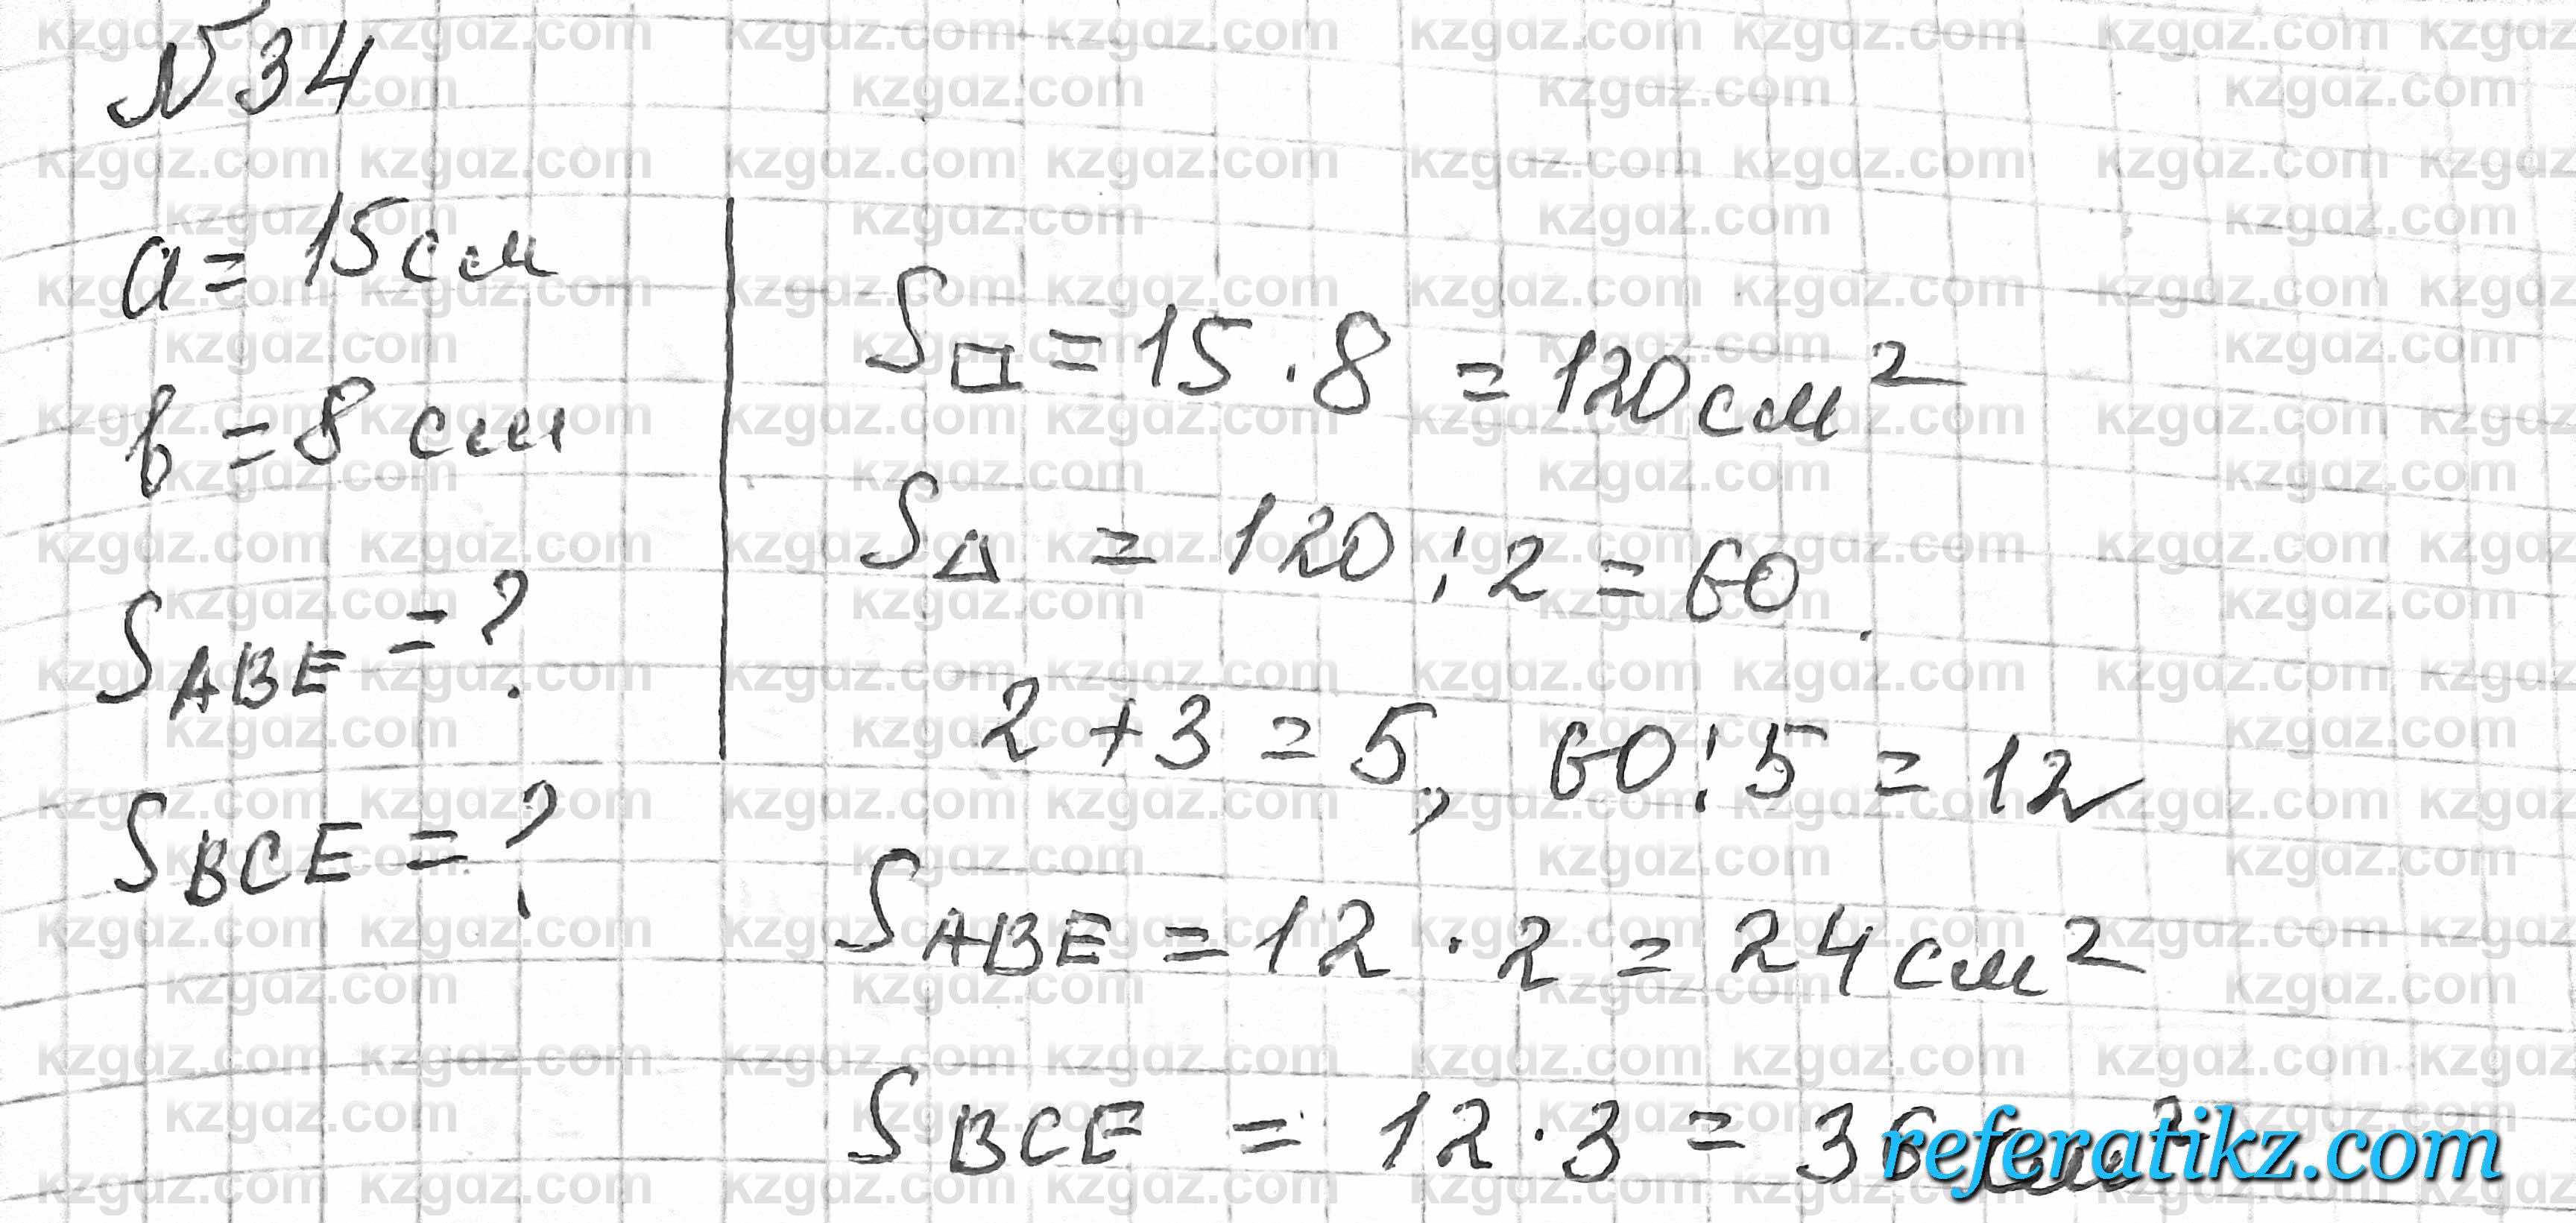 №34
a = 15 см
b = 8 см
S ABE = ?
S BCE = ?
S□ = 15 · 8 = 120 см²
S△ = 120 : 2 = 60
2 + 3 = 5, 60 : 5 = 12
S ABE = 12 · 2 = 24 см²
S BCE = 12 · 3 = 36 см²
referatikz.com
kzgdz.com